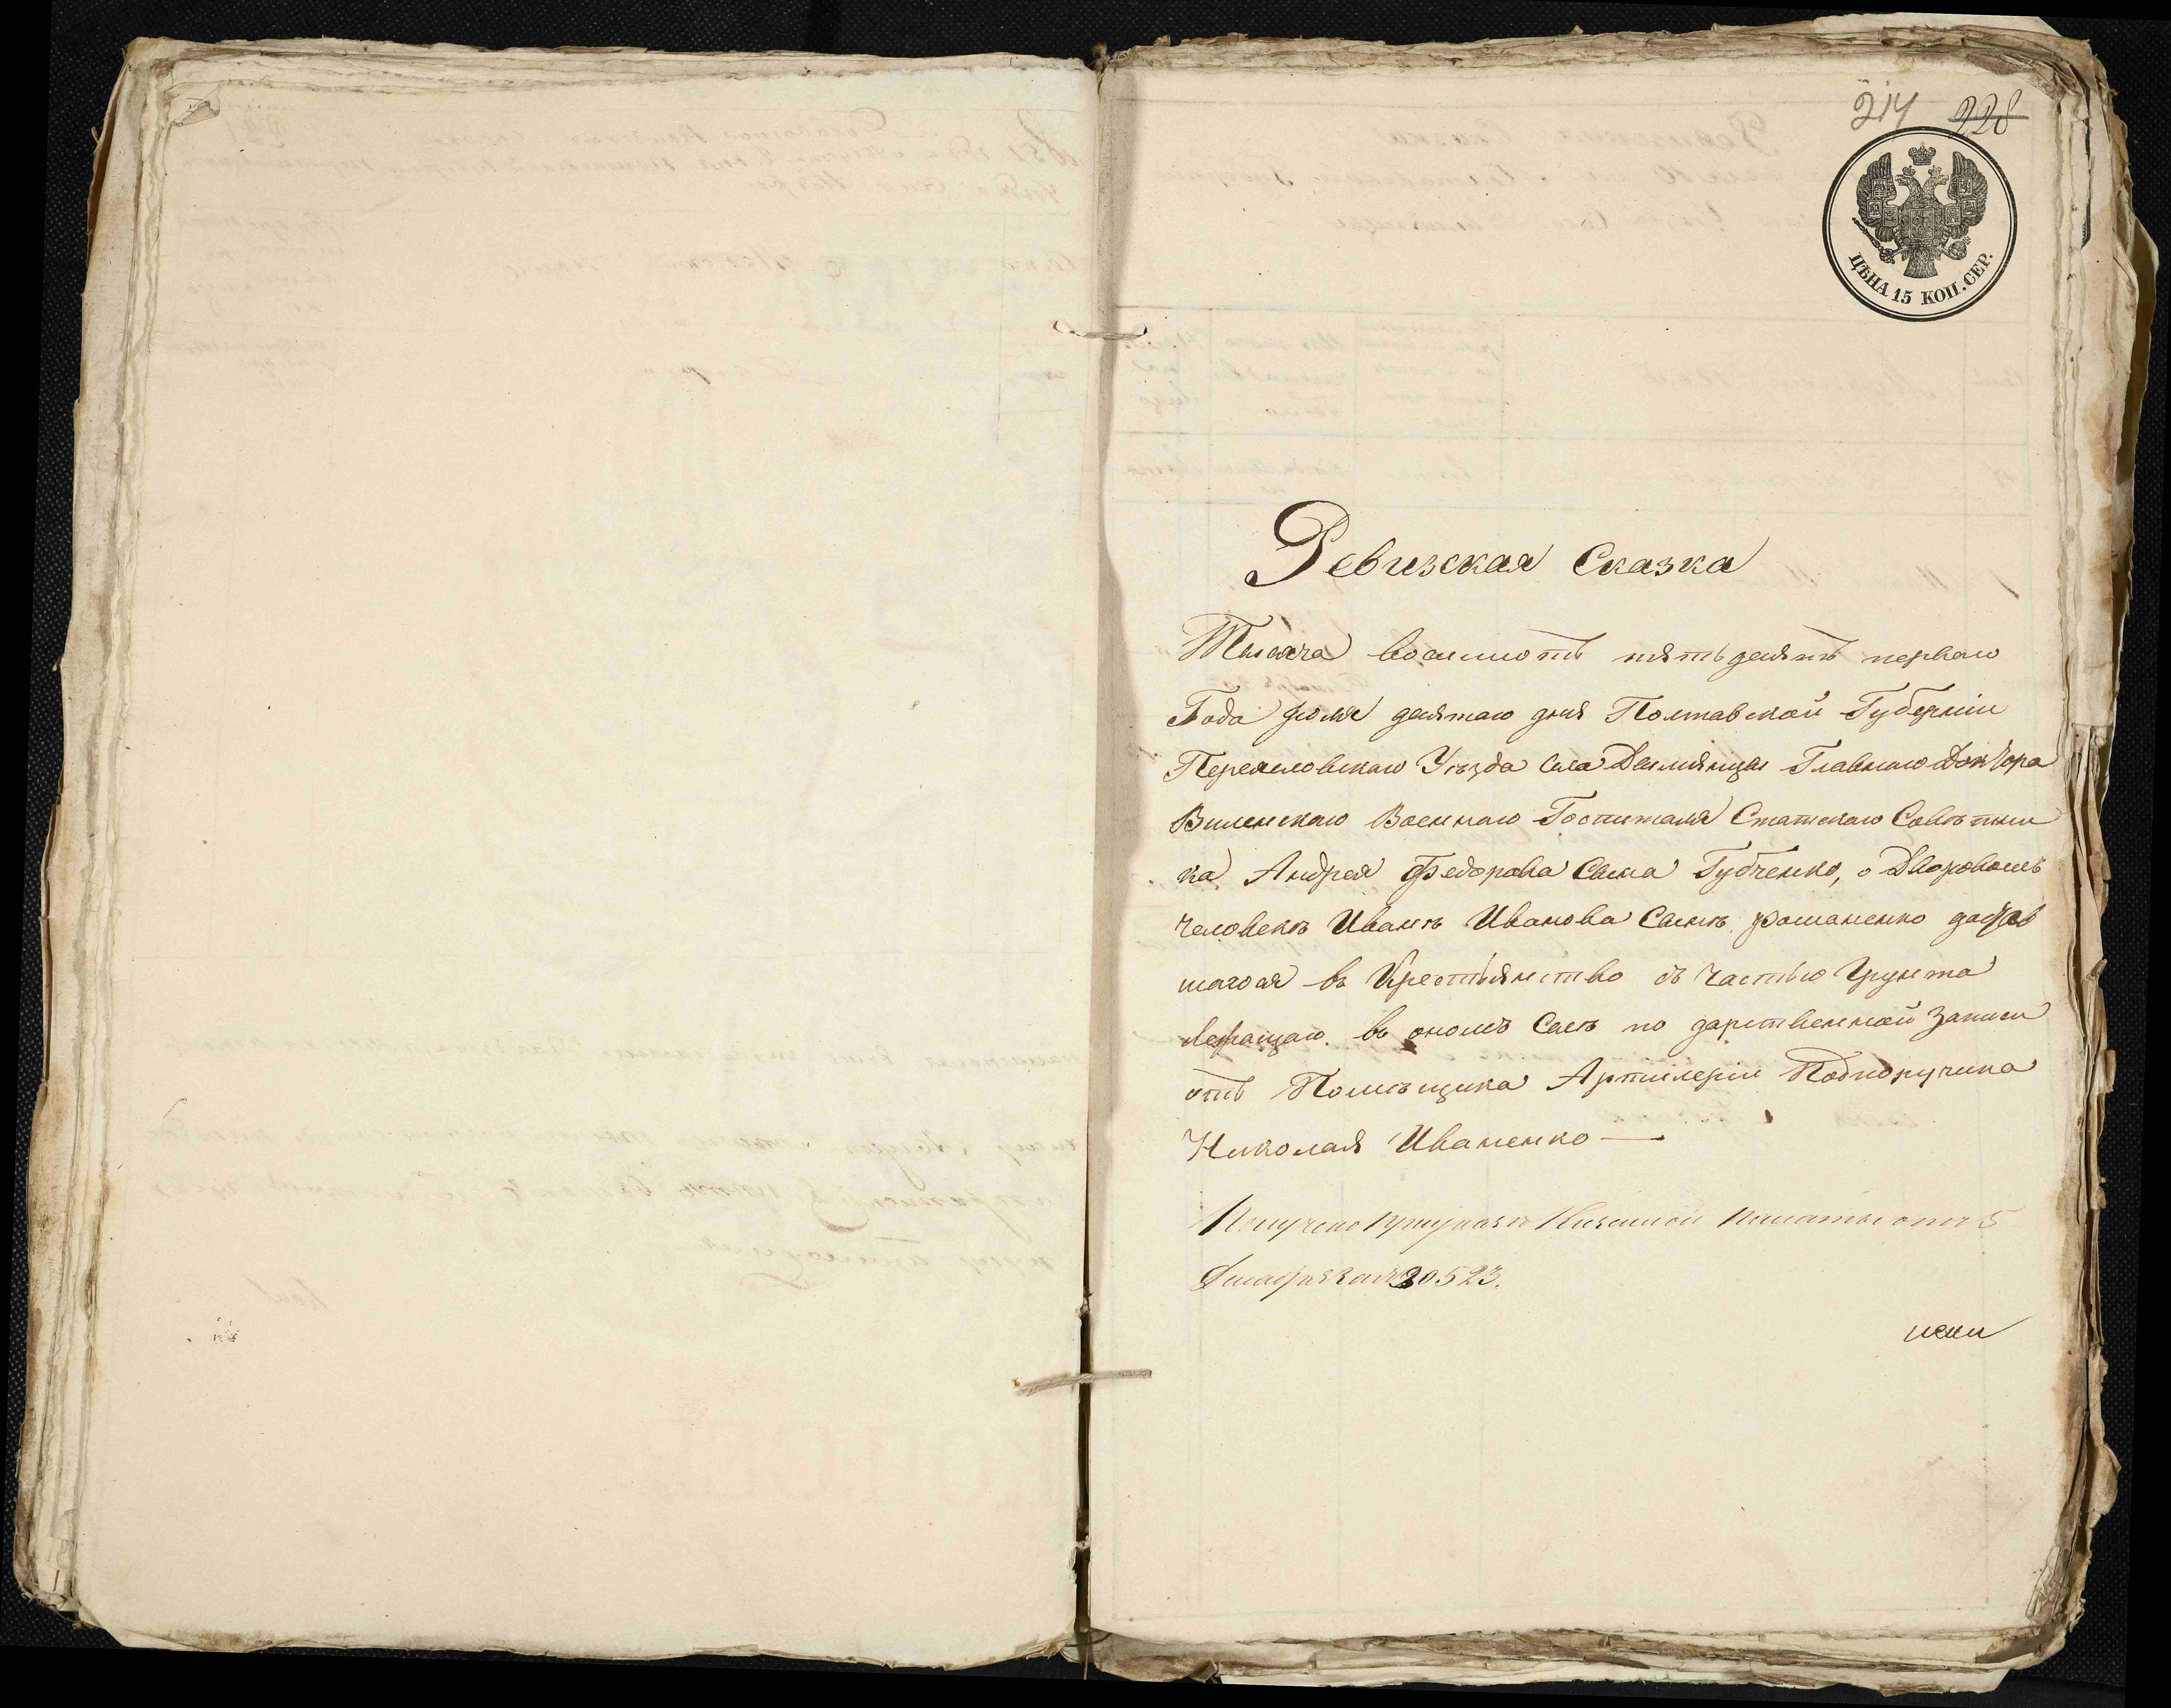 214 228
ЦѢНА 15 КОП. СЕР.
Ревизская Сказка
Тысяча восемьсотъ пятьдесятъ перваго
Года Июля десятаго дня Полтавской Губерніи
Переяловскаго Уѣзда Села Демьянцы Главнаго Доктора
Виленскаго Военнаго Госпиталя Статскаго Совѣтни
ка Андрея Федорова Сына Губченко, о Дворовомъ
человекѣ Иванѣ Иванова Сынѣ Романенко
въ Крестьянство съ частью Грунта
лежащаго въ ономъ Селѣ по дарственной Записи
отъ Помѣщика Артилеріи Подпоручика
Николая Иваненко —
Получено при указѣ Казенной Палаты отъ 5
Декабря за № 20523.